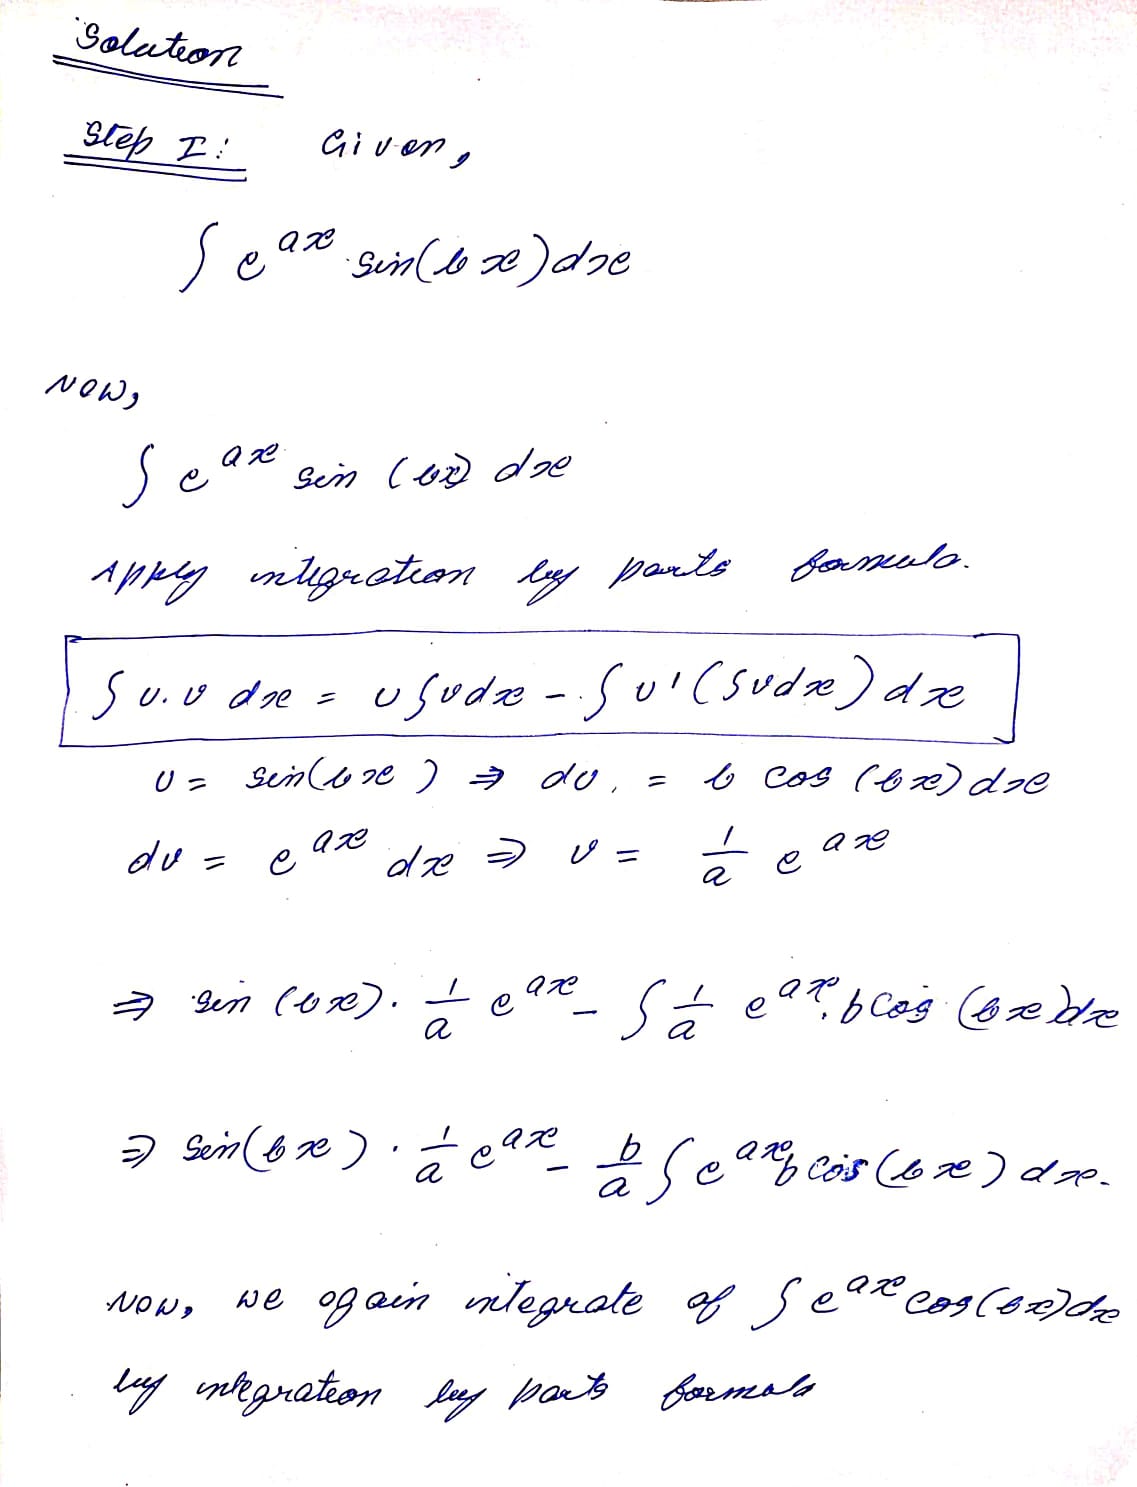 Solution
Step I: Given,
∫ e^{ax} sin(bx) dx
Now,
∫ e^{ax} sin (bx) dx
Apply integration by parts formula.
∫ u.v dx = u ∫ v dx - ∫ u' (∫ v dx) dx
u = sin(bx) ⇒ du, = b cos (bx) dx
dv = e^{ax} dx ⇒ v = 1/a e^{ax}
⇒ sin (bx). 1/a e^{ax} - ∫ 1/a e^{ax}. b cos (bx) dx
⇒ sin(bx) . 1/a e^{ax} - b/a ∫ e^{ax} b cos (bx) dx.
Now, we again integrate of ∫ e^{ax} cos(bx) dx
by integration by parts formula